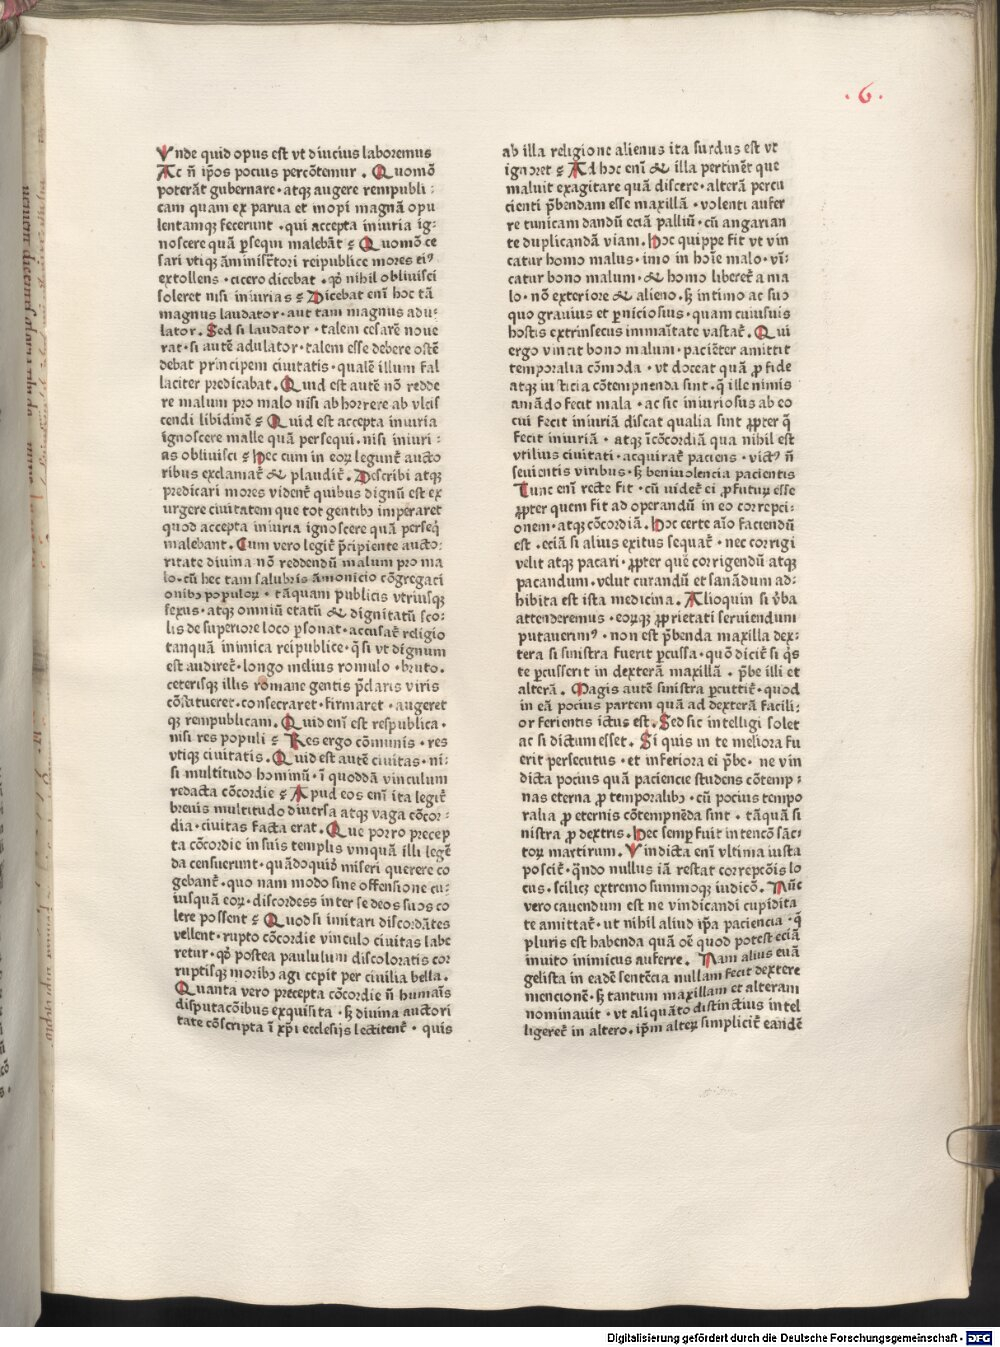 ·6·
Vnde quid opus est vt diucius laboremus
Ac ñ ip̃os pocius percõtemur . Quomõ
poterãt gubernare · atqꝫ augere rempubli :
cam quam ex parua et inopi magnã opu
lentamqꝫ fecerunt · qui accepta iniuria ig-
noscere quã ꝑsequi malebãt ꝛ Quomõ ce
sari vtiqꝫ ãministr̃tori reipublice mores eiꝰ
extollens · cicero dicebat · qꝙ nihil obliuisci
soleret nisi iniurias ꝛ Dicebat enĩ hoc tã
magnus laudator · aut tam magnus adu-
lator . Sed si laudator · talem cesarẽ noue
rat · si autẽ adulator · talem esse debere ostẽ
debat principem ciuitatis · qualẽ illum fal
laciter predicabat . Quid est autẽ nõ redde
re malum pro malo nisi abhorrere ab vlcis
cendi libidinẽ ꝛ Quid est accepta iniuria
ignoscere malle quã persequi · nisi iniuri :
as obliuisci ꝛ Hec cum in eoꝝ legunt̃ aucto
ribus exclamat̃ & plaudit̃ . Describi atqꝫ
predicari mores vident̃ quibus dignũ est ex
urgere ciuitatem que tot gentibꝫ imperaret
quod accepta iniuria ignoscere quã perseq̃
malebant . Cum vero legit̃ p̃cipiente aucto:
ritate diuina nõ reddendũ malum pro ma
lo · cũ hec tam salubris ãmonicio cõgregaci
onibꝫ populoꝝ · tãquam publicis vtriusqꝫ
sexus · atqꝫ omniũ etatũ & dignitatũ sco-
lis de superiore loco ꝑsonat · accusat̃ religio
tanquã inimica reipublice · q̃ si vt dignum
est audiret̃ · longo melius romulo · bruto .
ceterisqꝫ illis romane gentis p̃claris viris
cõstitueret · consecraret · firmaret · augeret
qꝫ rempublicam . Quid enĩ est respublica ·
nisi res populi ꝛ Res ergo cõmunis · res
vtiqꝫ ciuitatis . Quid est autẽ ciuitas · ni-
si multitudo hominũ · ĩ quoddã vinculum
redacta cõcordie ꝛ Apud eos enĩ ita legit̃
breuis multitudo diuersa atqꝫ vaga cõcor-
dia · ciuitas facta erat . Que porro precep
ta cõcordie in suis templis vnquã illi legẽ
da censuerunt · quãdoquidẽ miseri querere co
gebant̃ · quo nam modo sine offensione cu:
iusquã eoꝝ · discordes inter se deos suos co
lere possent ꝛ Quod si imitari discordãtes
vellent · rupto cõcordie vinculo ciuitas labe
retur · qꝙ postea paululum discoloratis cor
ruptisqꝫ moribꝫ agi cepit per ciuilia bella .
Quanta vero precepta cõcordie ñ humaĩs
disputacõibus exquisita · sꝫ diuina auctori
tate cõscripta ĩ xp̃i ecclesijs lectitent̃ · quis
ab illa religione alienus ita surdus est vt
ignoret ꝛ Ad hoc enĩ & illa pertinẽt que
maluit exagitare quã discere · alterã percu
cienti p̃bendam esse maxillã · volenti aufer
re tunicam dandũ eciã palliũ · cũ angarian
te duplicandã viam . Hoc quippe fit vt vin
catur homo malus · imo in hoĩe malo · vĩ:
catur bono malum · & homo liberet̃ a ma
lo · nõ exteriore & alieno · sꝫ intimo ac suo
quo grauius et ꝑniciosius · quam cuiusuis
hostis extrinsecus immaĩtate vastat̃ . Qui
ergo vincit bono malum · paciẽter amittit
temporalia cõmoda · vt doceat quã ꝓ fide
atqꝫ iusticia cõtempnenda sint · q̃ ille nimis
amãdo fecit mala · ac sic iniuriosus ab eo
cui fecit iniuriã discat qualia sint ꝓpter q̃
fecit iniuriã · atqꝫ ĩcõcordiã qua nihil est
vtilius ciuitati · acquirat̃ paciens · victꝰ ñ
seuientis viribus · sꝫ beniuolencia pacientis
Tunc enĩ recte fit · cũ videt̃ ei ꝓfuturꝝ esse
ꝓpter quem fit ad operandũ in eo correpci-
onem · atqꝫ cõcordiã . Hoc certe aĩo faciendũ
est · eciã si alius exitus sequat̃ · nec corrigi
velit atqꝫ pacari · ꝓpter quẽ corrigendũ atqꝫ
pacandum · velut curandũ et sanãdum ad-
hibita est ista medicina . Alioquin si v̾ba
attenderemus · eorꝝqꝫ ꝓprietati seruiendum
putauerimꝰ · non est p̃benda maxilla dex-
tera si sinistra fuerit ꝑcussa · quõ dicit̃ si q̃s
te ꝑcusserit in dexterã maxillã · p̃be illi et
alterã . Magis autẽ sinistra ꝑcutit̃ · quod
in eã pocius partem quã ad dexterã facili-
or ferientis ictus est . Sed sic intelligi solet
ac si dictum esset . Si quis in te meliora fu
erit persecutus · et inferiora ei p̃be · ne vin
dicta pocius quã paciencie studens cõtemp :
nas eterna ꝓ temporalibꝫ · cũ pocius tempo
ralia ꝓ eternis cõtempnẽda sint · tãquã si
nistra ꝓ dextris . Hec semꝑ fuit intencõ sãc-
toꝝ martirum . Vindicta enĩ vltima iusta
poscit̃ · q̃ndo nullus iã restat correpcõis lo
cus · scilicꝫ extremo summoqꝫ iudicõ . Nũc
vero cauendum est ne vindicandi cupidita
te amittat̃ · ut nihil aliud ip̃a paciencia · q̃
pluris est habenda quã oẽ quod potest eciã
inuito inimicus auferre . Nam alius euã
gelista in eadẽ sentẽcia nullam fecit dextere
mencionẽ · sꝫ tantum maxillam et alteram
nominauit · vt aliquãto distinctius intel
ligeret̃ in altero · ip̃m alteꝝ simplicit̃ eandẽ
Digitalisierung gefördert durch die Deutsche Forschungsgemeinschaft · DFG